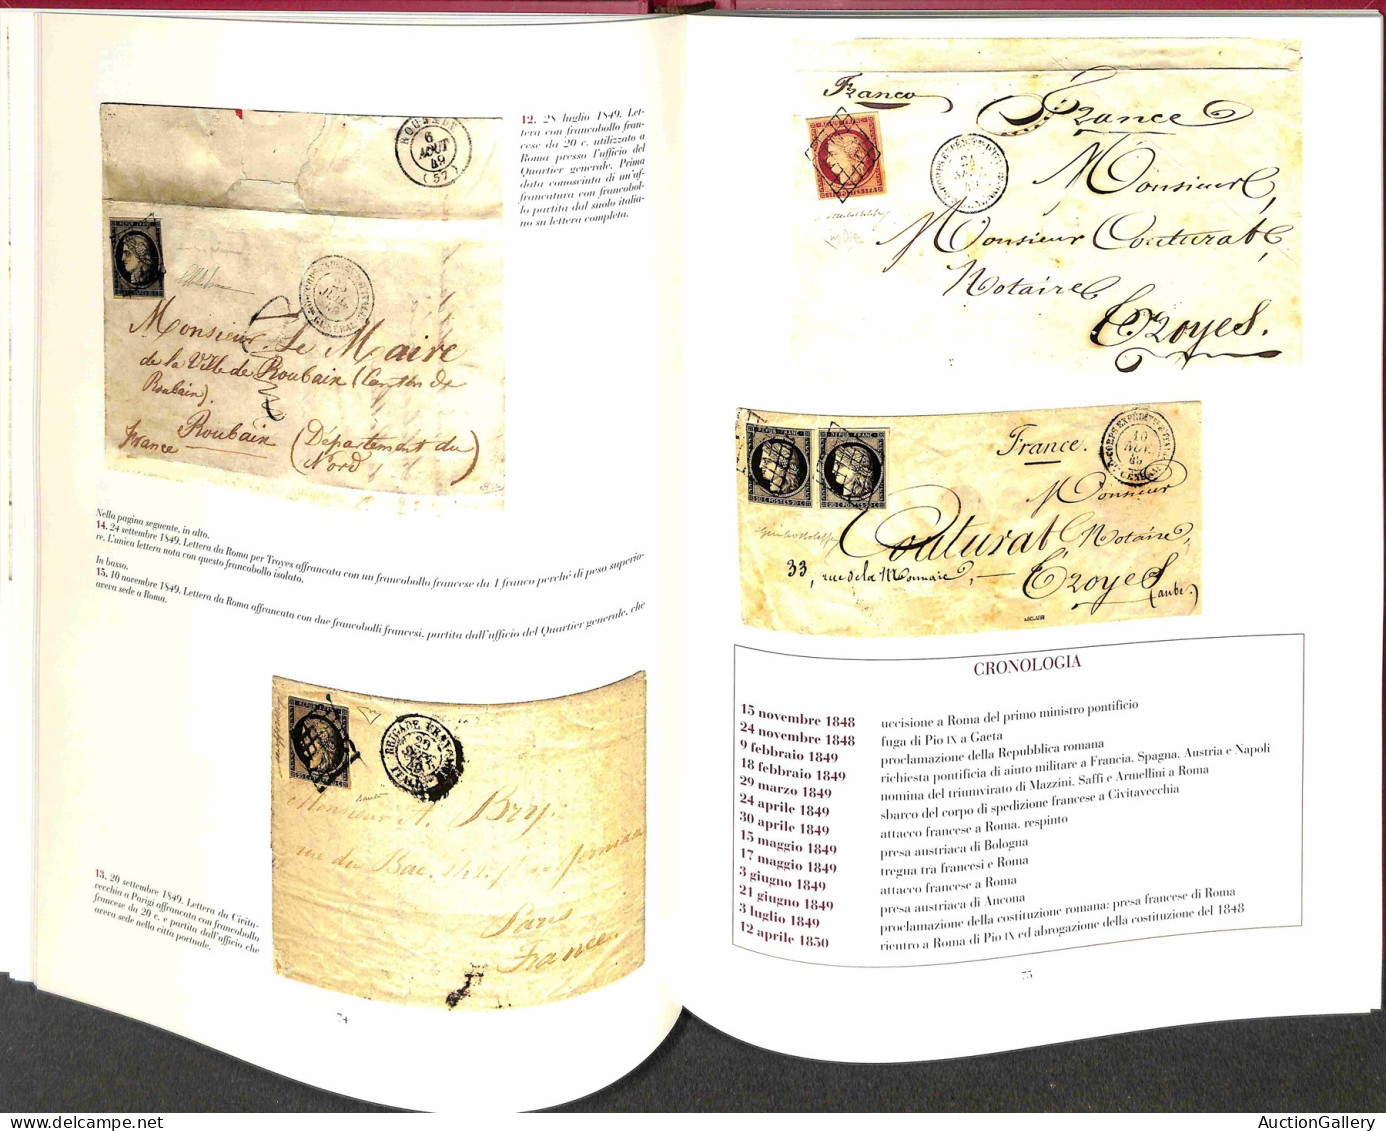 ROUBAIX
6
AOUT
49
(57)
12. 28 luglio 1849. Let-
tera con francobollo fran-
cese da 20 c. utilizzato a
Roma presso l'ufficio del
Quartier generale. Prima
data conosciuta di un'af-
francatura con francobol-
lo partita dal suolo italia-
no su lettera completa.
REPUB FRANC
Monsieur Le Maire
de la Ville de Roubaix (Canton de
Roubaix).
Roubaix (Département du
France Nord)
Nella pagina seguente, in alto.
14. 24 settembre 1849. Lettera da Roma per Troyes affrancata con un francobollo francese da 1 franco perché di peso superio-
re. L'unica lettera nota con questo francobollo isolato.
In basso.
15. 10 novembre 1849. Lettera da Roma affrancata con due francobolli francesi, partita dall'ufficio del Quartier generale, che
aveva sede a Roma.
REPUB FRANC
20 C
BRIGADE FRANÇAISE
20
SEPT
49
ITALIE
Monsieur A. Bry.
rue du Bac
Paris
France
13. 20 settembre 1849. Lettera da Civita-
vecchia a Parigi affrancata con francobollo
francese da 20 c. e partita dall'ufficio che
aveva sede nella città portuale.
74
Franco
France
Monsieur
Monsieur Couturat
Notaire
Troyes.
REPUB FRANC REPUB FRANC
20 C POSTES 20 C 20 C POSTES 20 C
France.
CORPS EXPÉDIT. D'ITALIE
10
NOV.
49
Monsieur
Couturat, Notaire,
33, rue de la Monnaie,
Troyes
(aube).
CRONOLOGIA
15 novembre 1848 uccisione a Roma del primo ministro pontificio
24 novembre 1848 fuga di Pio IX a Gaeta
9 febbraio 1849 proclamazione della Repubblica romana
18 febbraio 1849 richiesta pontificia di aiuto militare a Francia, Spagna, Austria e Napoli
29 marzo 1849 nomina del triumvirato di Mazzini, Saffi e Armellini a Roma
24 aprile 1849 sbarco del corpo di spedizione francese a Civitavecchia
30 aprile 1849 attacco francese a Roma, respinto
15 maggio 1849 presa austriaca di Bologna
17 maggio 1849 tregua tra francesi e Roma
3 giugno 1849 attacco francese a Roma
21 giugno 1849 presa austriaca di Ancona
3 luglio 1849 proclamazione della costituzione romana; presa francese di Roma
12 aprile 1850 rientro a Roma di Pio IX ed abrogazione della costituzione del 1848
75
AuctionGallery